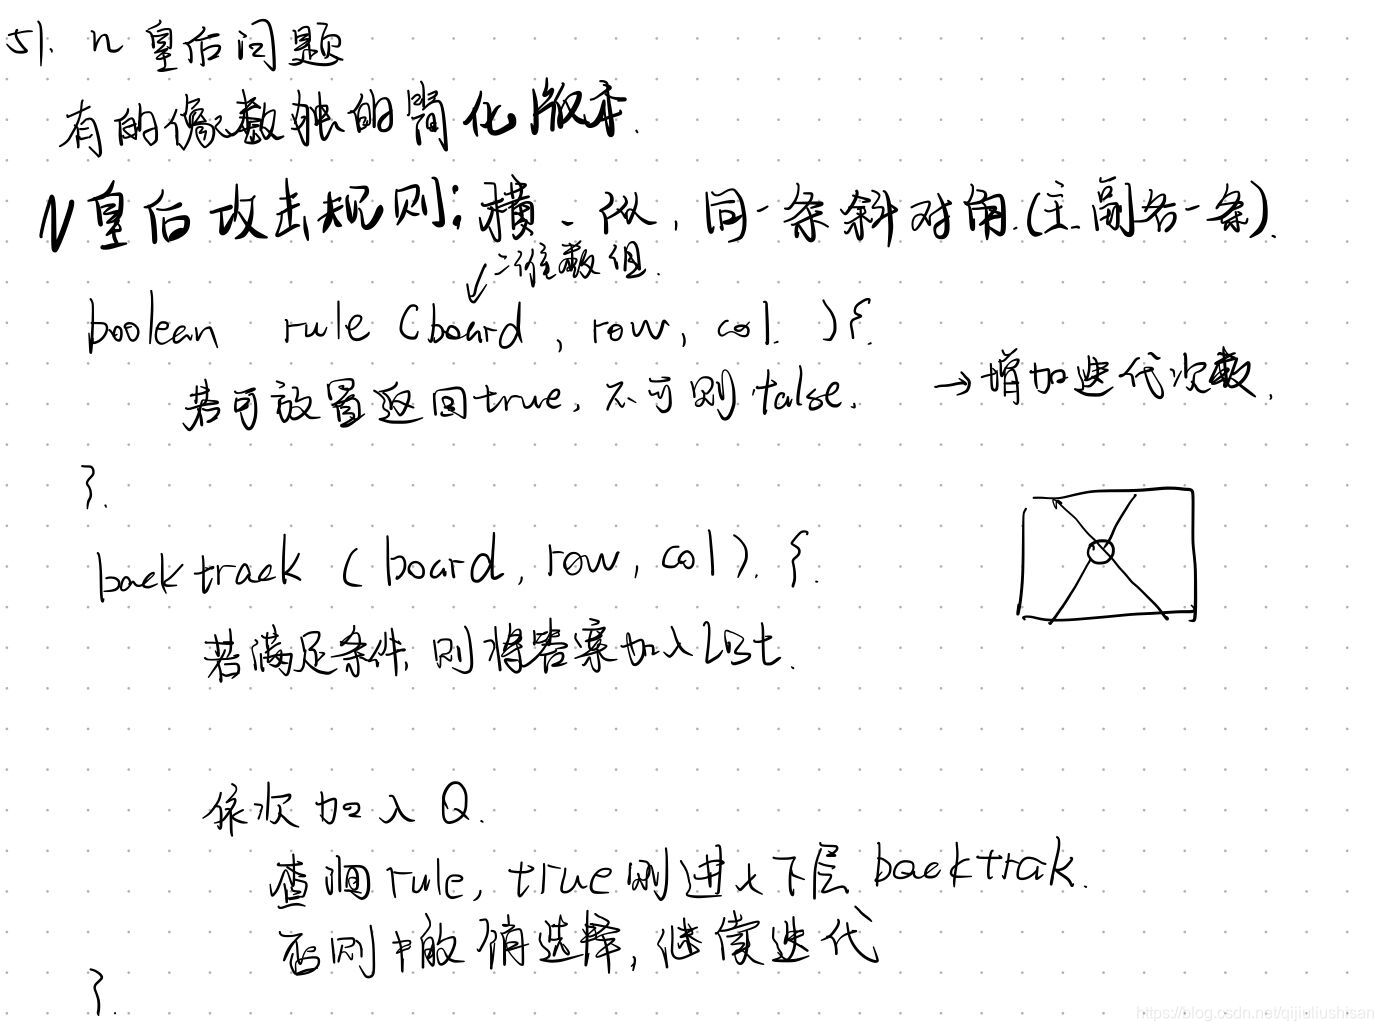 51. n 皇后问题
有的像数独的简化版本.
N皇后攻击规则:横、纵,同一条斜对角.(主、副各一条).
二维数组.
boolean rule (board, row, col. ){.
若可放置返回true,不可则false.
→增加迭代次数.
}.
backtrack (board, row, col). {.
若满足条件,则将答案加入List.
依次加入Q.
查询rule, true则进入下层backtrak.
否则撤销选择,继续迭代
}.
https://blog.csdn.net/qijiuliushisan